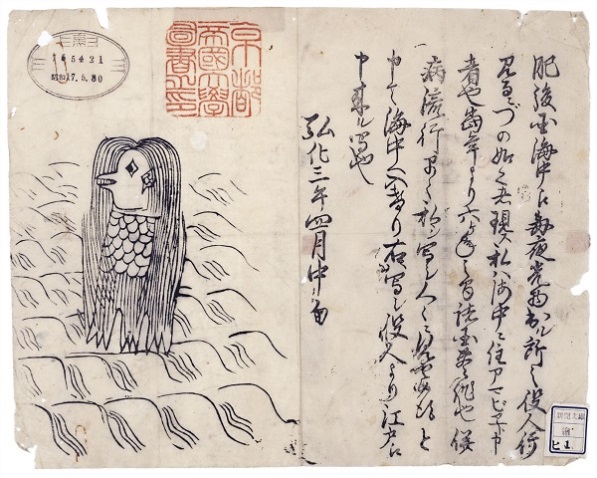 肥後国海中え毎夜光物出ル所之役人行
見るニづの如く者現ス私ハ海中ニ住アマビヱト申
者也当年より六ヶ年之間諸国豊作也併
病流行早々私ヲ写シ人々ニ見セ候得と
申て海中へ入けり右写シ役人より江戸え
申来ル写也
弘化三年四月中旬
京都
帝國大學
圖書之印
165421
昭和17.5.30